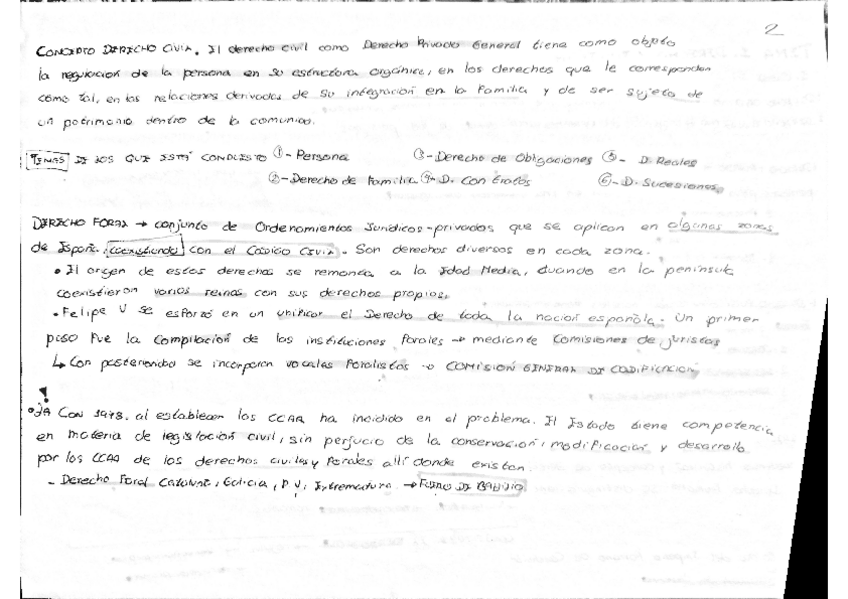 2
CONCEPTO DERECHO CIVIL. El derecho civil como Derecho Privado General tiene como objeto
la regulacion de la persona en su estructura orgánica, en los derechos que le corresponden
como tal, en las relaciones derivadas de su integracion en la familia y de ser sujeto de
un patrimonio dentro de la comunidad.
TEMAS DE LOS QUE ESTÁ COMPUESTO ① - Persona ③ - Derecho de Obligaciones ⑤ - D. Reales
② - Derecho de Familia ④ - D. Contratos ⑥ - D. Sucesiones
DERECHO FORAL → conjunto de Ordenamientos Jurídicos-privados que se aplican en algunas zonas
de España, coexistiendo con el CODIGO CIVIL. Son derechos diversos en cada zona.
• El origen de estos derechos se remonta a la Edad Media, cuando en la península
coexistieron varios reinos con sus derechos propios.
• Felipe V se esforzó en un unificar el Derecho de toda la nacion española. Un primer
paso fue la compilacion de las instituciones Forales → mediante Comisiones de juristas
↳ Con posterioridad se incorporan vocales Foralistas → COMISION GENERAL DE CODIFICACION
!
• LA CON 1978. al establecer las CCAA ha incidido en el problema. El Estado tiene competencia
en materia de legislacion civil, sin perjucio de la conservacion, modificacion y desarrollo
por las CCAA de los derechos civiles y Forales allí donde existan.
- Derecho Foral Cataluña, Galicia, P.V, Extremadura. → FUERO DE BAYLIO.